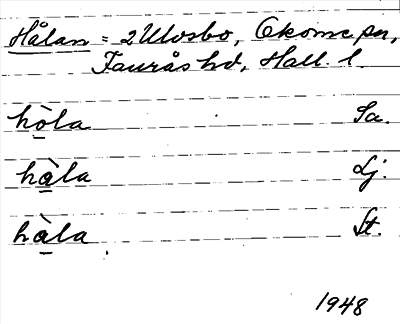 Hålan = 2 Ulvsbo, Okome sn,
Faurås hd, Hall. l.
hòla Sa.
hàla Lj.
hàla St.
1948